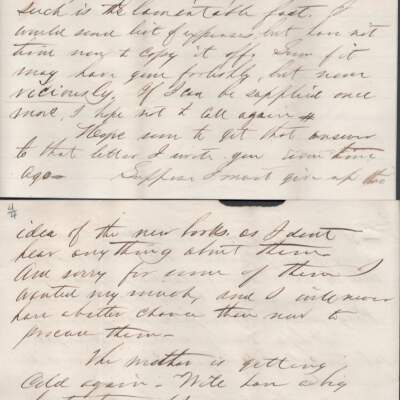 Such is the lamentable fact. I
would send list of expenses, but have not
time now to copy it off. Some of it
may have gone foolishly, but never
viciously. If I can be supplied once
more, I hope not to call again
Hope soon to get that answer
to that letter I wrote you some time
ago. Suppose I must give up the
idea of the new books, as I dont
hear anything about them.
Am sorry for some of them I
wanted very much, and I will never
have a better chance than now to
procure them.
The weather is getting
Cold again. We have a big